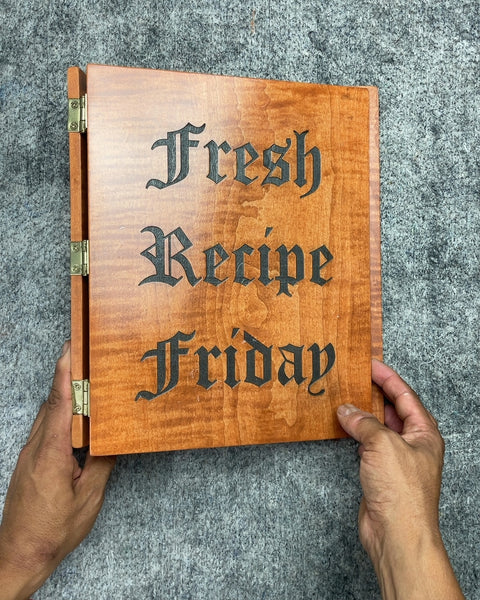 Fresh
Recipe
Friday